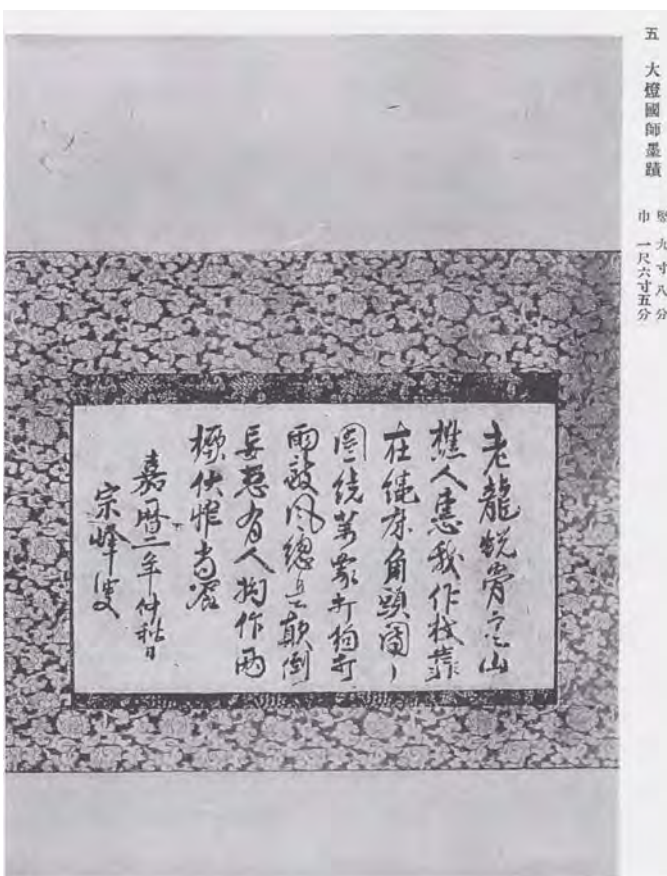 五 大燈國師墨蹟
竪 九寸八分
巾 一尺六寸五分
老龍蛻骨空山
樵人惠我作杖靠
在繩床角頭
繞萬象打狗打
雨敲風總是顛倒
妄想有人拗作兩
橛伏惟尚饗
嘉暦二年仲穐日
宗峰叟